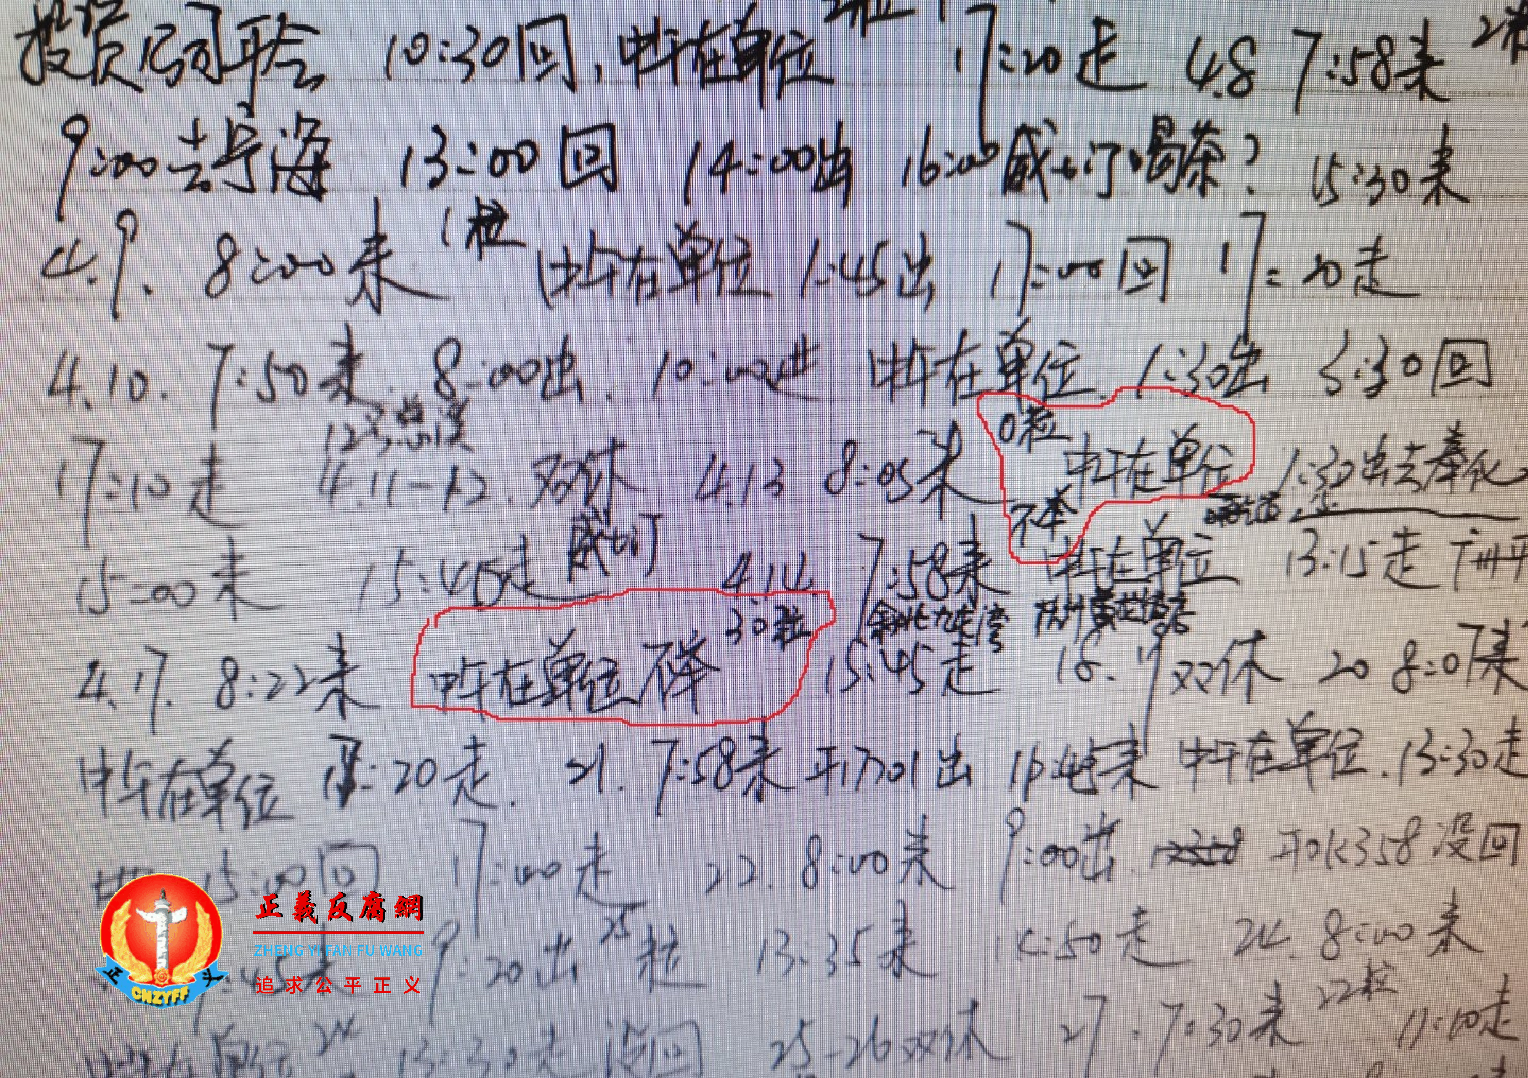 投资公司开会 10:30回,中午在单位 17:20走 4.8 7:58来
9:00去宁海 13:00回 14:00出 16:00威士汀喝茶? 15:30来
4.9. 8:00来 1粒 中午在单位 1:45出 17:00回 17:20走
4.10. 7:50来 8:00出 10:00进 中午在单位. 1:30出 3:30回
17:10走 4.11-12.双休 4.13 8:05来 0粒 中午在单位 不举 1:30出去奉化
15:00来 15:45走 威士汀 4.14 7:58来 中午在单位 13:15走
4.17. 8:22来 中午在单位 不举 30粒 15:45走 18.19双休 20 8:07来
中午在单位 :20走. 21. 7:58来 开17701出 中午在单位.13:30走
15:00回 17:00走 22. 8:00来 9:00出 开0K358没回
9:20出 25粒 13:35来 :50走 24. 8:00来
13:30走 没回 25-26双休 27. 7:30来 22粒 走
正義反腐網
ZHENG YI FAN FU WANG
追求公平正义
正 义
CNZYFF